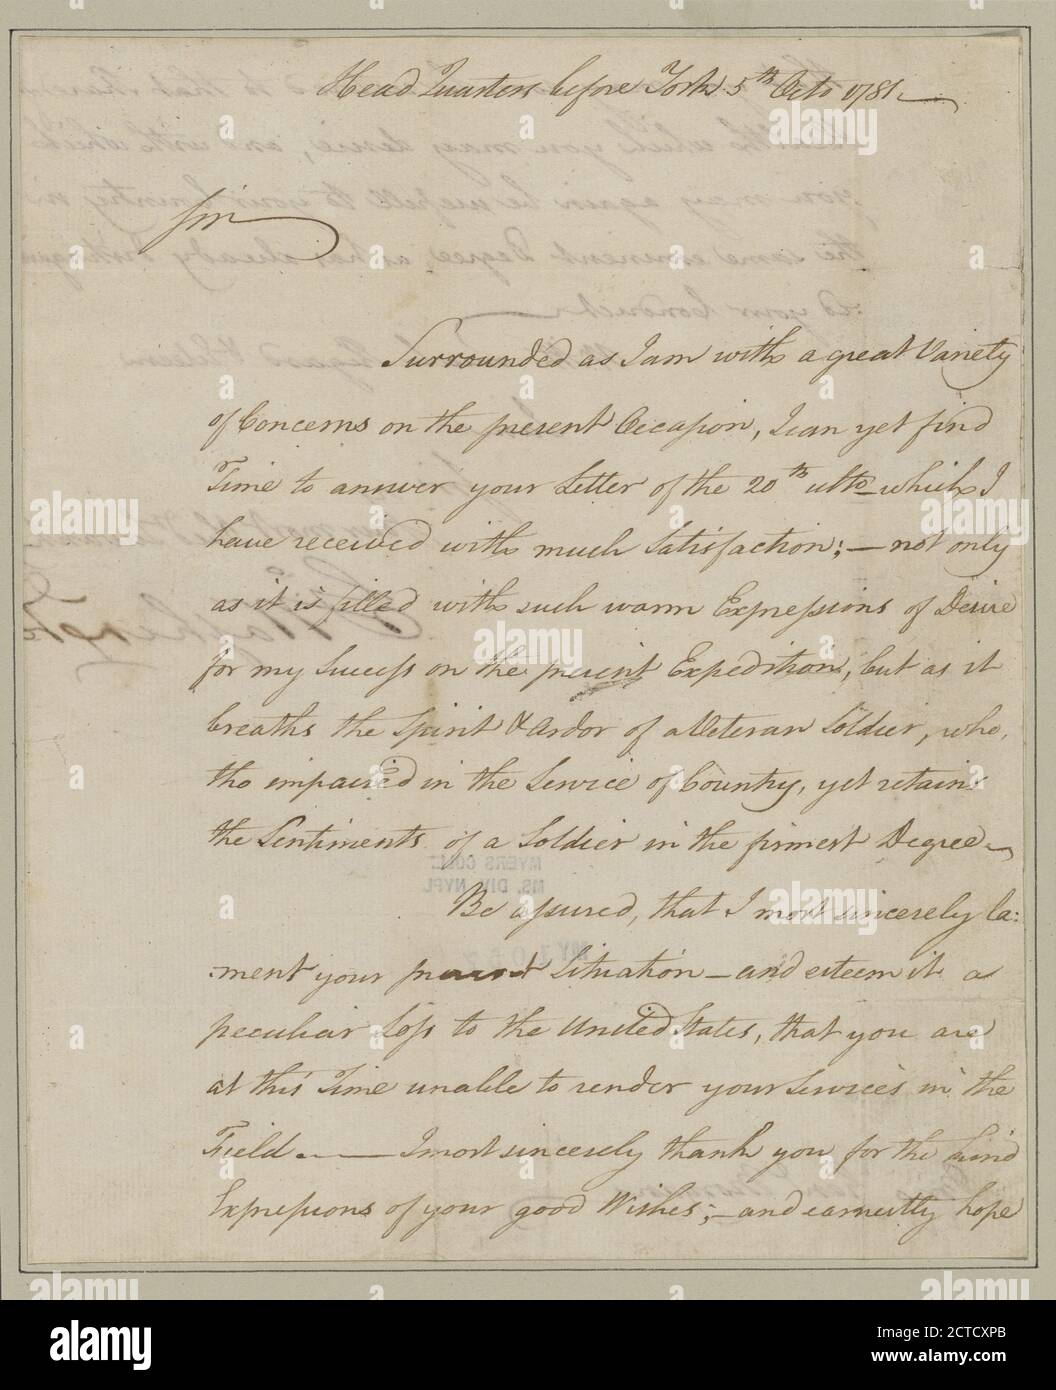 Head Quarters before York 5th Octo 1781
Sir
Surrounded as I am with a great Variety
of Concerns on the present Occasion, I can yet find
Time to answer your Letter of the 20th ulto which I
have received with much Satisfaction; — not only
as it is filled with such warm Expressions of Desire
for my Success on the present Expedition, but as it
breaths the Spirit & Ardor of a Veteran Soldier, who,
tho impaired in the Service of Country, yet retains
the Sentiments of a Soldier in the firmest Degree
Be assured, that I most sincerely la:
:ment your present Situation — and esteem it a
peculiar Loss to the United States, that you are
at this Time unable to render your Services in the
Field. — I most sincerely thank you for the kind
Expressions of your good Wishes; — and earnestly hope
MYERS COLL.
MS. DIV. NYPL
alamy
Image ID: 2CTCXPB
www.alamy.com